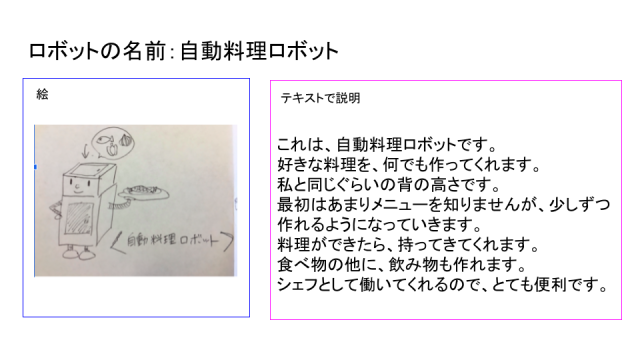 ロボットの名前：自動料理ロボット
絵
自動料理ロボット
テキストで説明
これは、自動料理ロボットです。
好きな料理を、何でも作ってくれます。
私と同じぐらいの背の高さです。
最初はあまりメニューを知りませんが、少しずつ
作れるようになっていきます。
料理ができたら、持ってきてくれます。
食べ物の他に、飲み物も作れます。
シェフとして働いてくれるので、とても便利です。